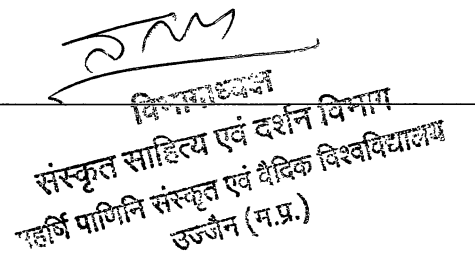 विभागाध्यक्ष
संस्कृत साहित्य एवं दर्शन विभाग
महर्षि पाणिनि संस्कृत एवं वैदिक विश्वविद्यालय
उज्जैन (म.प्र.)